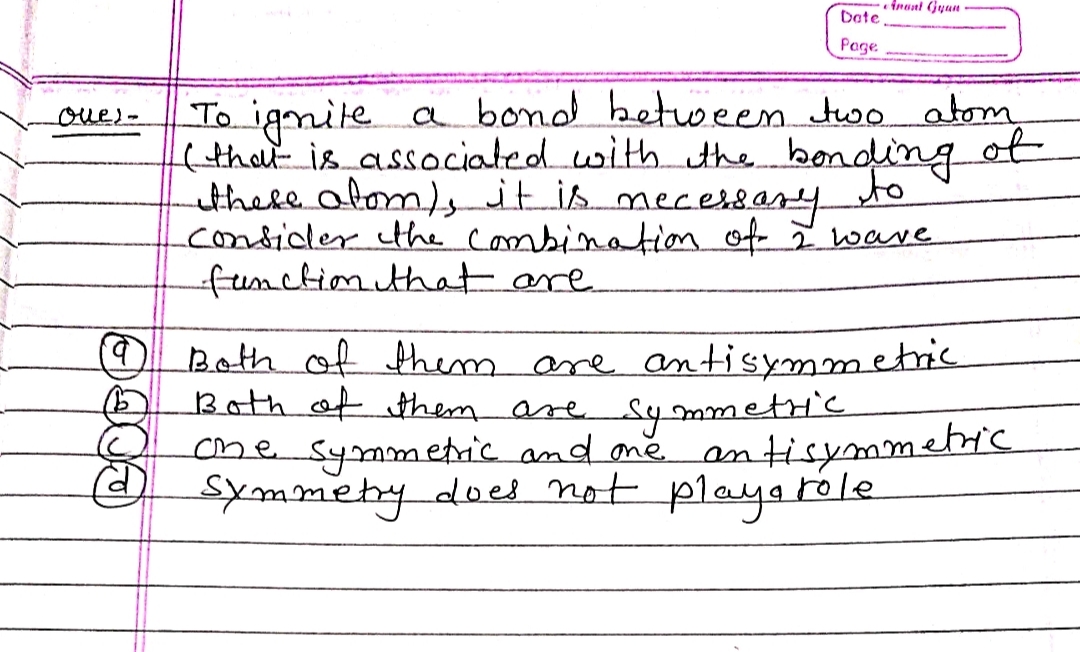 Anant Gyan
Date
Page
Ques- To ignite a bond between two atom
(that is associated with the bonding of
these atom), it is necessary to
consider the combination of 2 wave
function that are
(a) Both of them are antisymmetric
(b) Both of them are symmetric
(c) one symmetric and one antisymmetric
(d) Symmetry does not play a role